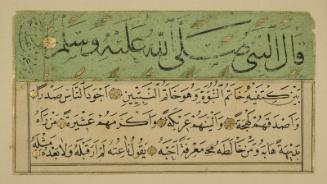 قال النبي صلى الله عليه وسلم
بين كتفيه خاتم النبوة وهو خاتم النبيين أجود الناس صدرا
وأصدقهم لهجة وألينهم عريكة وأكرمهم عشيرة من رآه
بديهة هابه ومن خالطه معرفة أحبه يقول ناعته لم أر قبله ولا بعده مثله